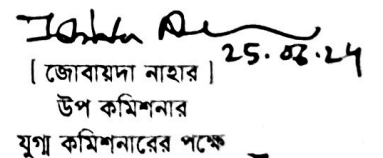 25.06.24
[ জোবায়দা নাহার ]
উপ কমিশনার
যুগ্ম কমিশনারের পক্ষে